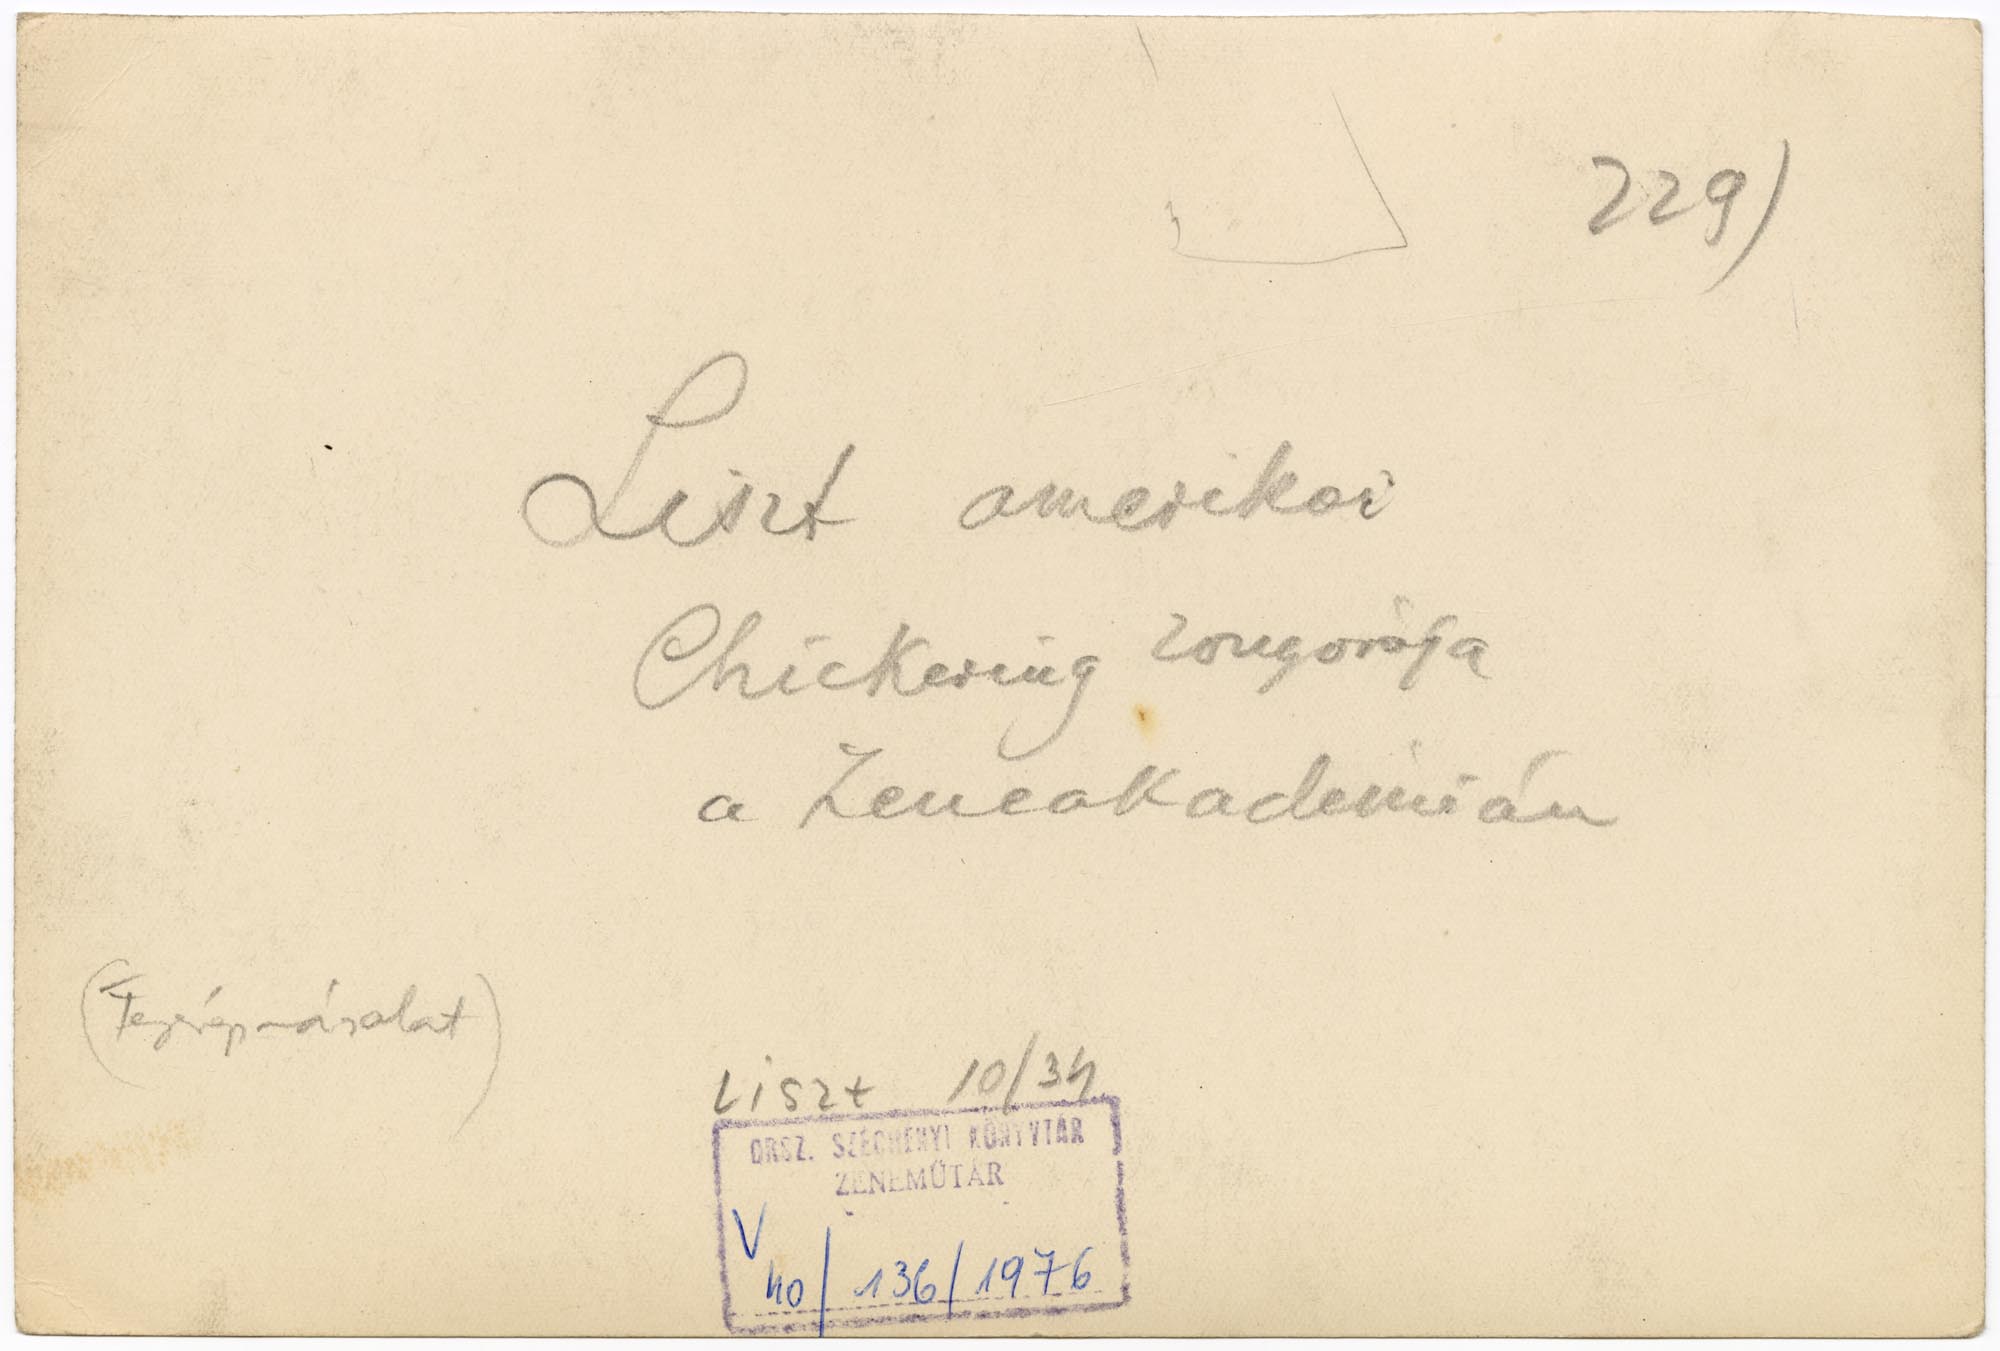 229)
Liszt amerikai
Chickering zongorája
a Zeneakademián
(Fényképmásolat)
Liszt 10/34
ORSZ. SZÉCHENYI KÖNYVTÁR
ZENEMŰTÁR
V
40/136/1976